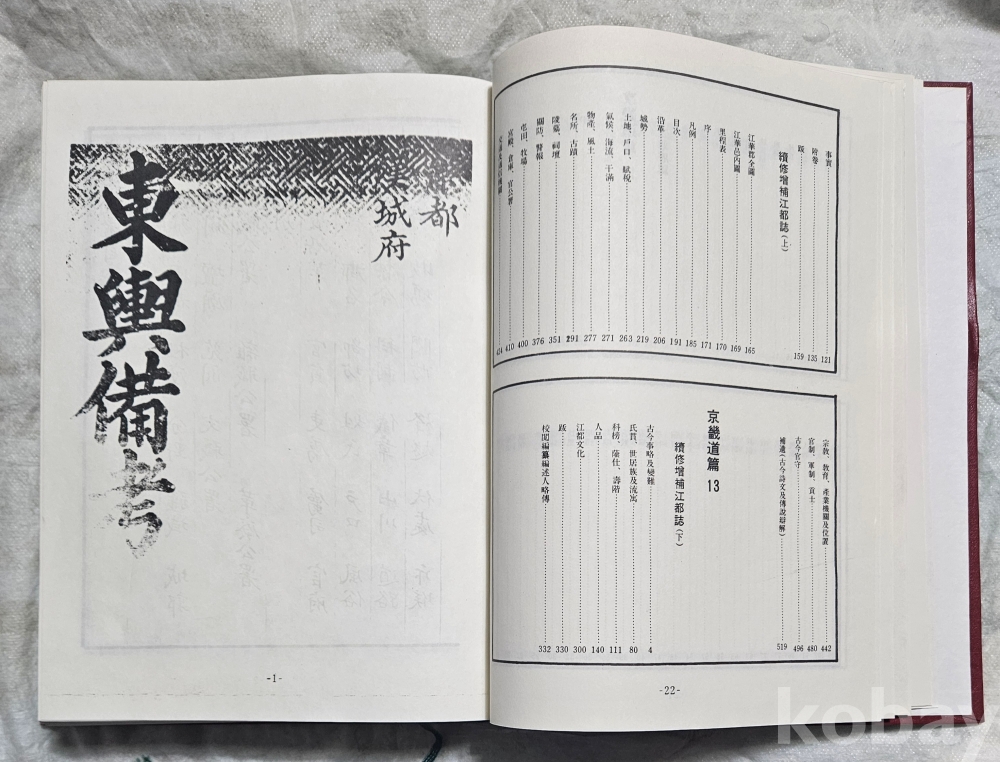 事實 121
附卷 135
跋 159
續修增補江都誌(上)
江華郡全圖 165
江華邑內圖 169
里程表 170
序 171
凡例 185
目次 191
沿革 206
城勢 219
土地、戶口、賦稅 263
氣候、海流、干滿 271
物產、風土 277
名所、古蹟 291
陵墓、祠壇 351
關防、警報 376
屯田、牧場 400
宮殿、倉庫、官公署 410
424
宗敎、敎育、產業機關及位置 442
官制、軍制、貢士 480
古今官守 496
補遺(古今詩文及傳說辯解) 519
京畿道篇 13
續修增補江都誌(下)
古今事略及變難 4
氏貫、世居族及流寓 80
科榜、蔭仕、壽階 111
人品 140
江都文化 300
跋 330
校閱編纂編述人略傳 332
-22-
都
城府
東輿備考
-1-
kobay